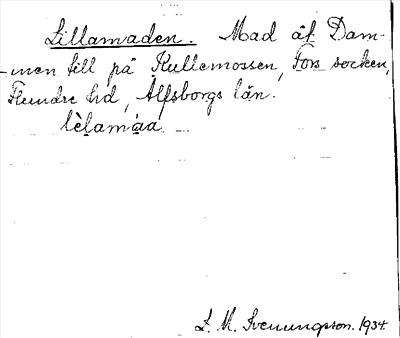 Lillamaden. Mad åt Dam-
-men till på Kullemossen, Fors socken,
Flundre hd, Älfsborgs län.
lèlamáa
L. M. Svenungsson. 1934.